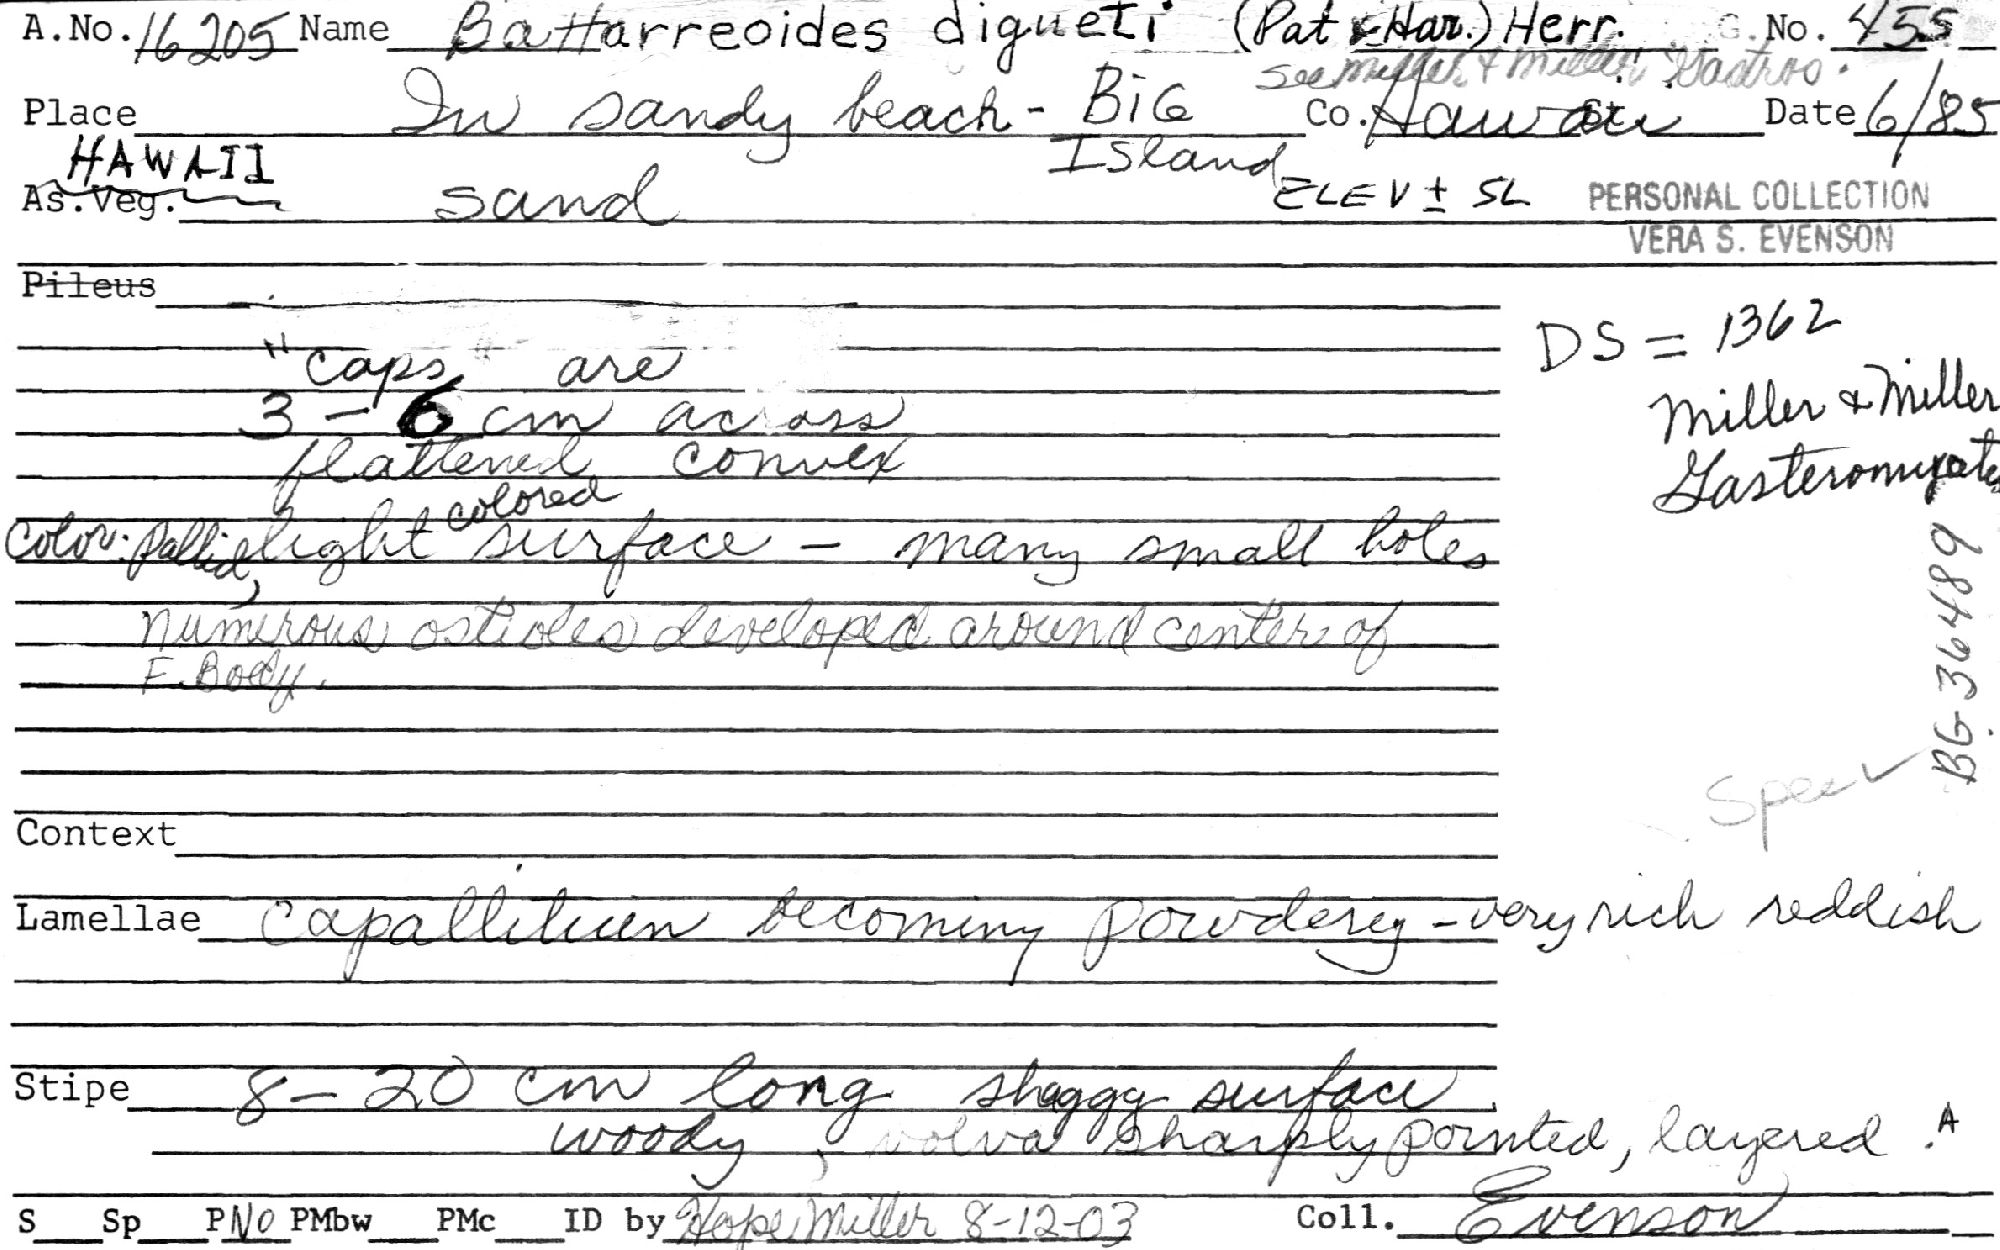 A.No. 16205 Name Battarreoides digueti (Pat & Har.) Herr. G. No. 455
See Miller & Miller Gastros.
Place In sandy beach - BiG Co. Hawaii St. Date 6/85
HAWAII Island
As.Veg. sand ELEV ± SL PERSONAL COLLECTION
VERA S. EVENSON
Pileus
"caps" are
3 - 6 cm across
flattened convex
DS = 1362
Miller & Miller
Gasteromycetes
colored
Color: pallid, light surface - many small holes
numerous ostioles developed around center of
F. Body.
BG 36489
Spec ✓
Context
Lamellae Capallitium becoming powderey - very rich reddish
Stipe 8 - 20 cm long shaggy surface
woody, volva sharply pointed, layered. A
S Sp P No PMbw PMc ID by Hope Miller 8-12-03 Coll. Evenson